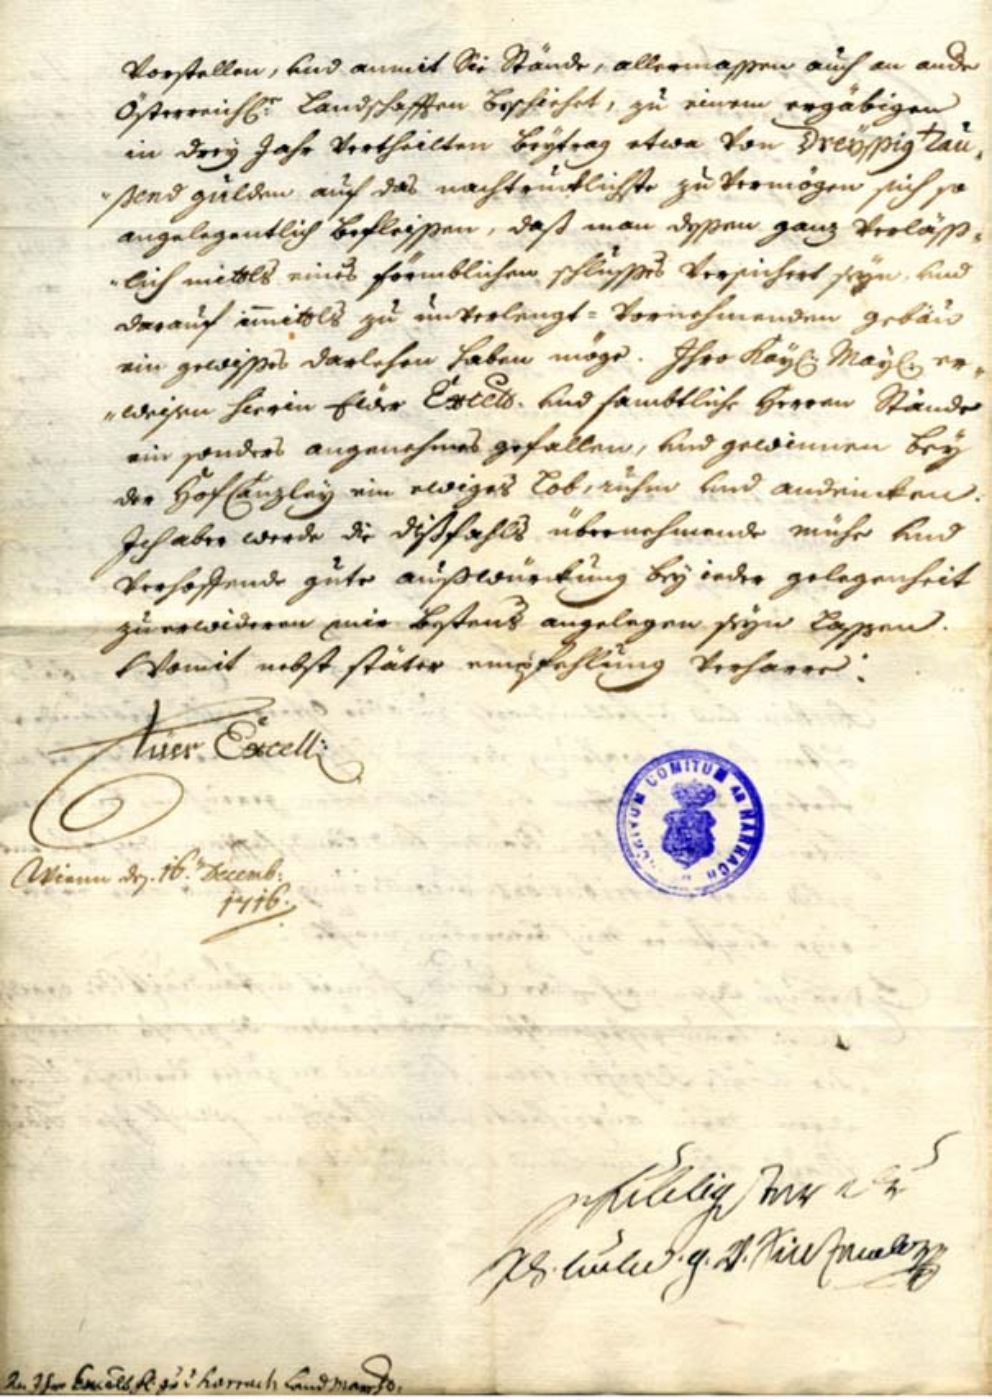 Vorstellen, und anmit Sie Stände, allermassen auch an ande
Österreich: Landschafften beschiehet, zu einem ergäbigen
in drey Jahr vertheilten beytrag etwa von Dreyssig tau,
"send gulden auf das nachtrucklichste zu vermögen sich so
angelegentlich befleissen, daß man dessen ganz verläss=
"lich mittels eines förmblichen schlusses versichert seyn, und
darauf immittels zu unverlengt= vornehmenden gebäu
ein gewisses darlehen haben möge. Ihro Kay: May: er="
"weisen hierin Euer Excell. und sambtliche Herren Stände
ein sonders angenehmes gefallen, und gewinnen bey
der HofCanzley ein ewiges Lob, ruhm und andencken.
Ich aber werde die dißfahls übernehmende mühe und
verhoffende gute außwürckung bey ieder gelegenheit
zu erwideren mir bestens angelegen seyn lassen.
Womit nebst stäter empfehlung verharre:
Euer Excell:
Wienn den 16. Decemb:
1716.
ARCHIVUM COMITUM AB HARRACH
An Ihro Excell. Harrach Land Marsch.